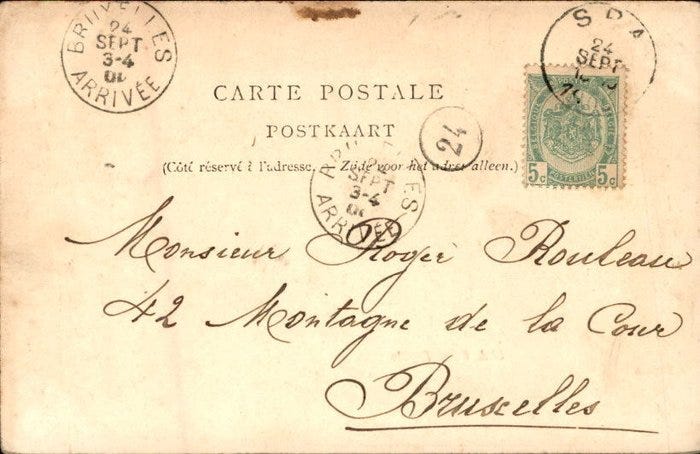 BRUXELLES
24
SEPT
3-4
ARRIVÉE
SPA
24
SEPT
CARTE POSTALE
POSTKAART
(Côté réservé à l'adresse. — Zijde voor het adres alleen.)
24
SEPT
3-4
ARRIVÉE
BELGIQUE
5c POSTERIJEN 5c
Monsieur Roger Rouleau
42 Montagne de la Cour
Bruxelles